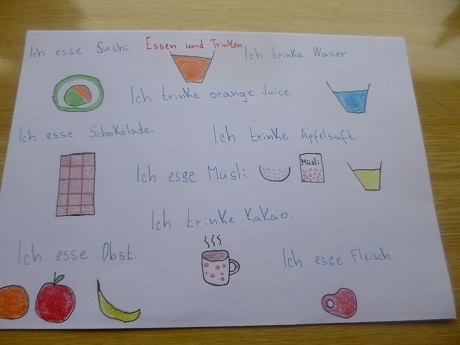 Essen und Trinken
Ich esse Sushi
Ich trinke Waser.
Ich trinke orange Juice.
Ich esse Schokolade.
Ich trinke Apfelsaft.
Ich esse Müsli.
Müsli
Ich trinke Kakao.
Ich esse Obst.
Ich esse Fleisch.